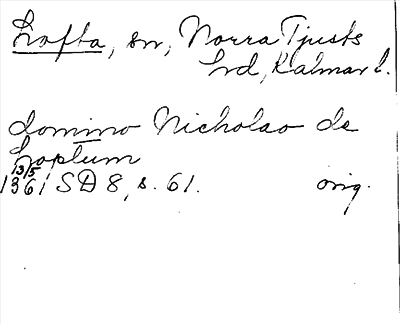 Lofta, sn, Norra Tjusts
hd, Kalmar l.
domino Nicholao de
Loptum
13/5
1361 SD 8, s. 61. orig.